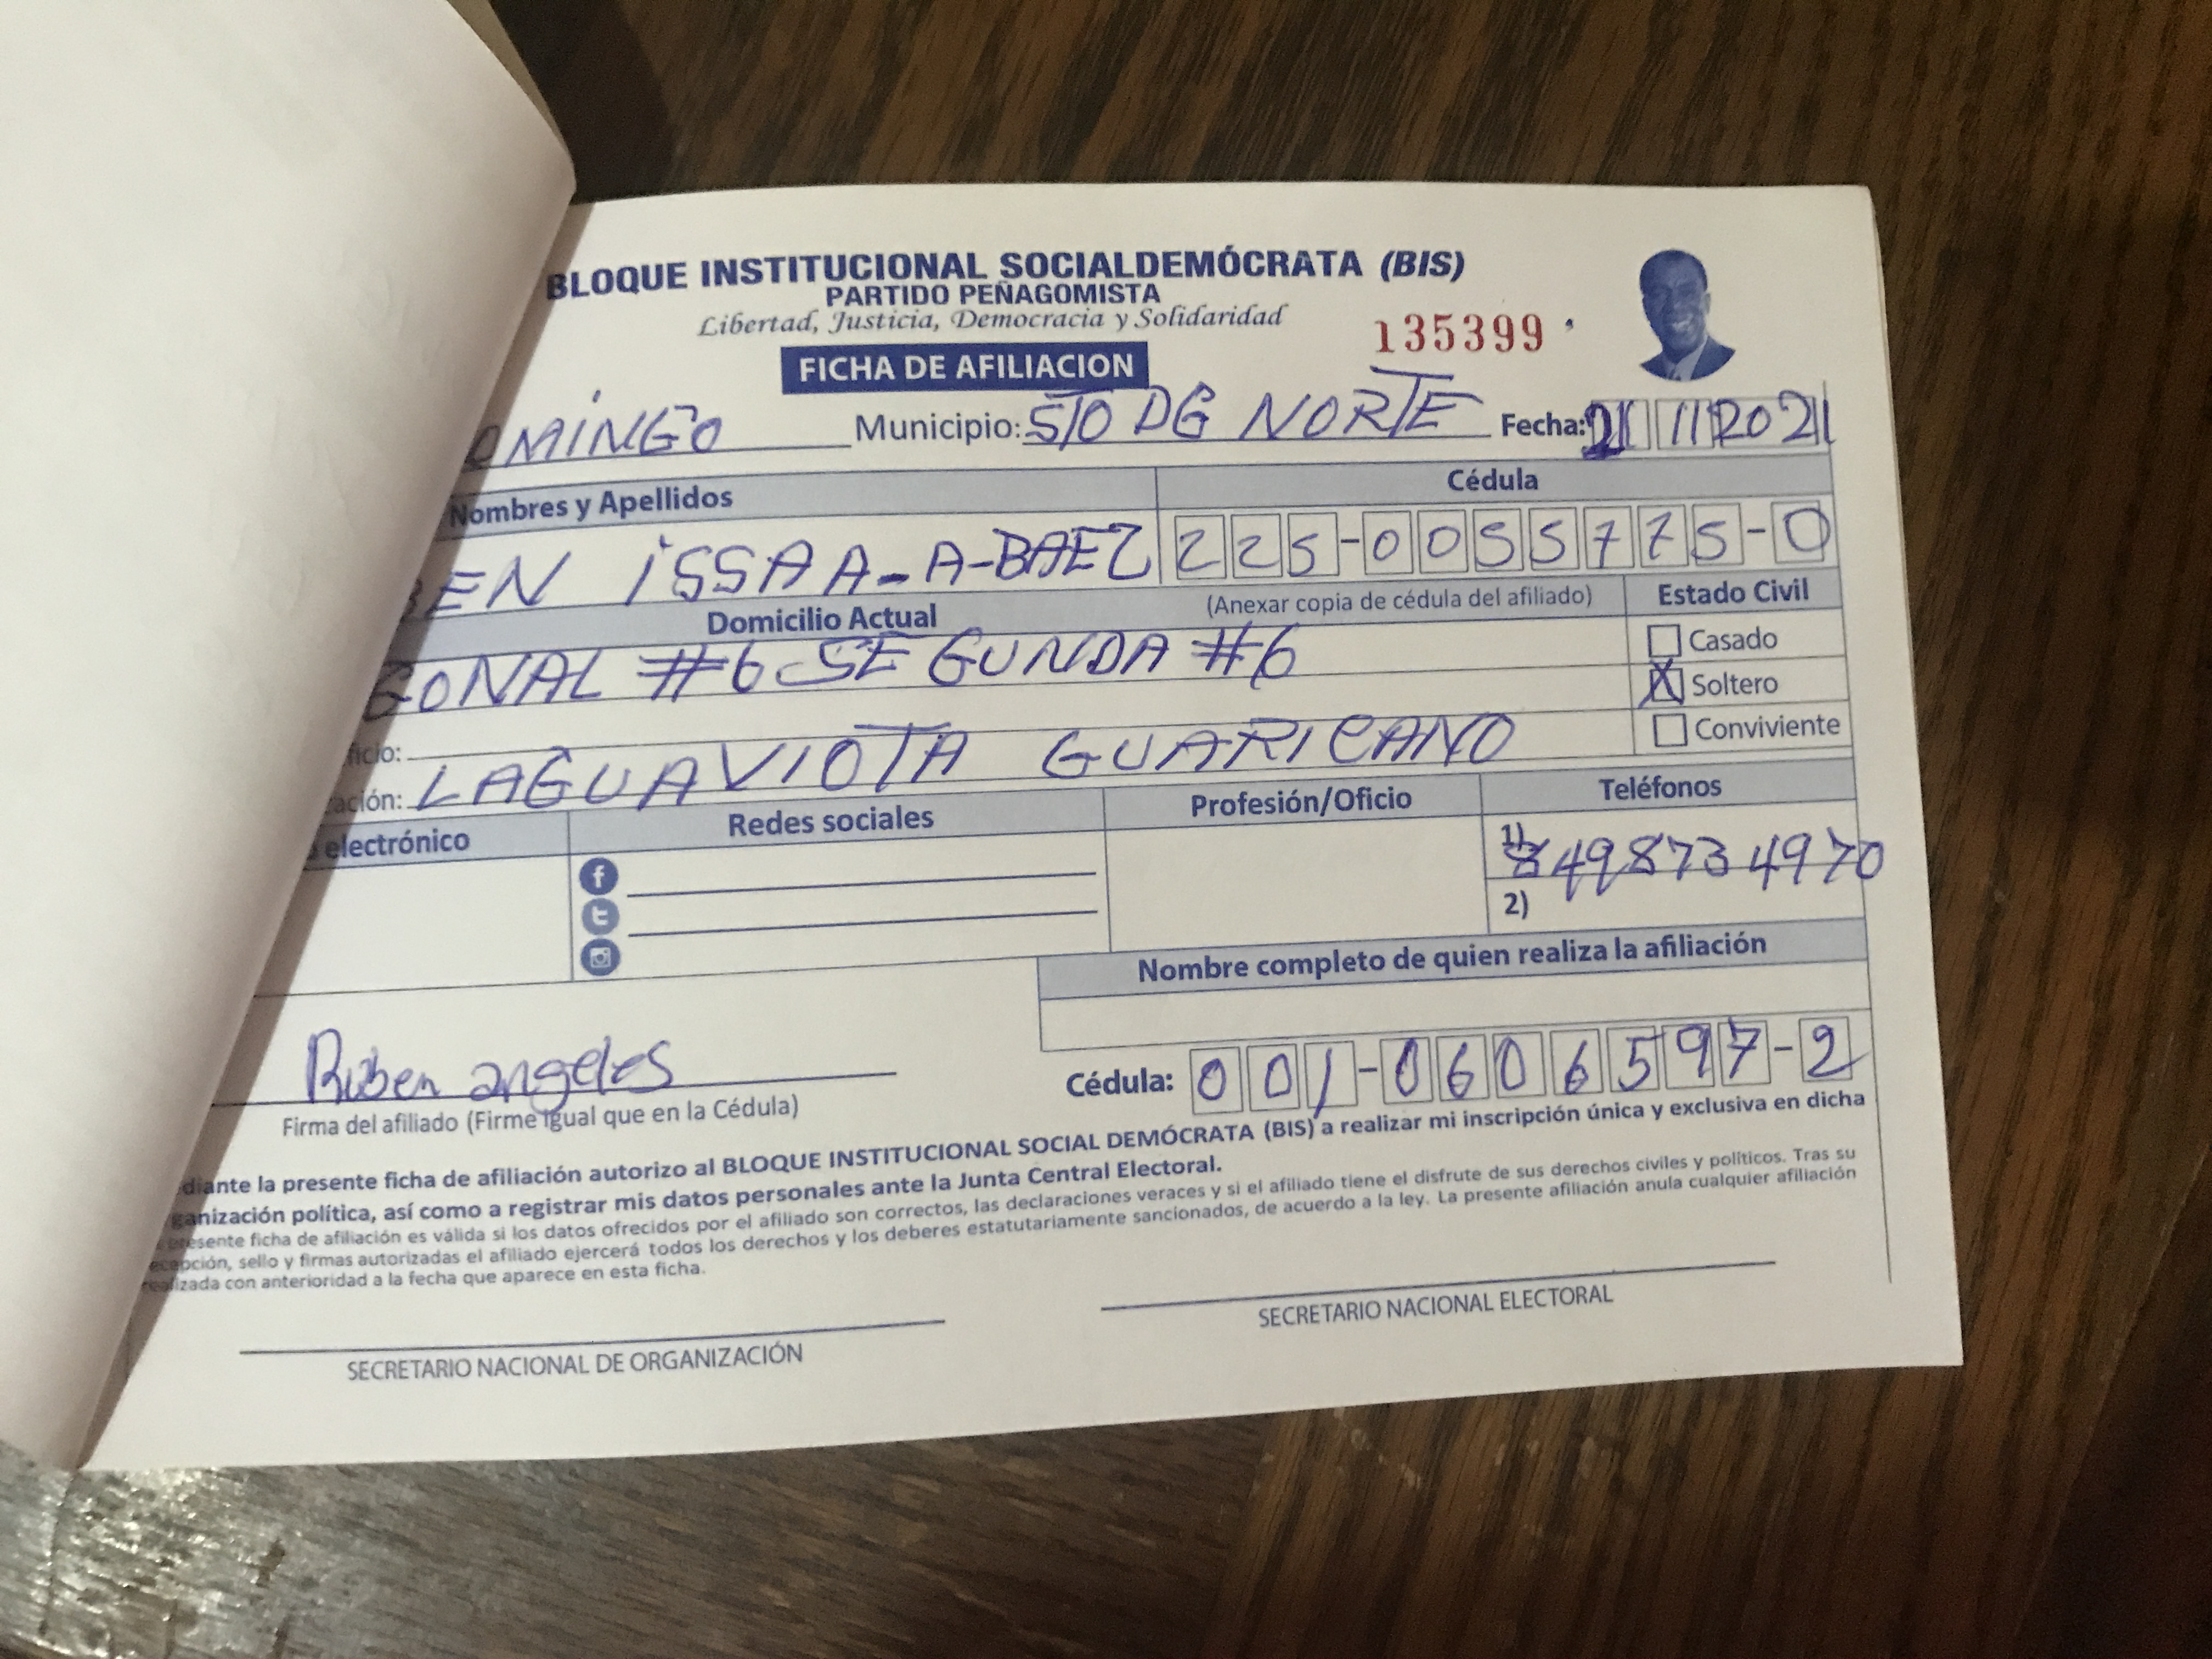 BLOQUE INSTITUCIONAL SOCIALDEMÓCRATA (BIS)
PARTIDO PEÑAGOMISTA
Libertad, Justicia, Democracia y Solidaridad
135399
FICHA DE AFILIACION
OMINGO Municipio: STO DG NORTE Fecha: 21 11 2021
Nombres y Apellidos Cédula
BEN ISSAA-A-BAEZ 225-0055775-0
Domicilio Actual (Anexar copia de cédula del afiliado) Estado Civil
GONAL #6 SEGUNDA #6 Casado
X Soltero
ficio: Conviviente
ación: LAGUAVIOTA GUARICANO
electrónico Redes sociales Profesión/Oficio Teléfonos
1) 8498734970
2)
Nombre completo de quien realiza la afiliación
Ruben angeles Cédula: 001-0606597-2
Firma del afiliado (Firme igual que en la Cédula)
diante la presente ficha de afiliación autorizo al BLOQUE INSTITUCIONAL SOCIAL DEMÓCRATA (BIS) a realizar mi inscripción única y exclusiva en dicha
ganización política, así como a registrar mis datos personales ante la Junta Central Electoral.
presente ficha de afiliación es válida si los datos ofrecidos por el afiliado son correctos, las declaraciones veraces y si el afiliado tiene el disfrute de sus derechos civiles y políticos. Tras su
ecepción, sello y firmas autorizadas el afiliado ejercerá todos los derechos y los deberes estatutariamente sancionados, de acuerdo a la ley. La presente afiliación anula cualquier afiliación
realizada con anterioridad a la fecha que aparece en esta ficha.
SECRETARIO NACIONAL DE ORGANIZACIÓN SECRETARIO NACIONAL ELECTORAL